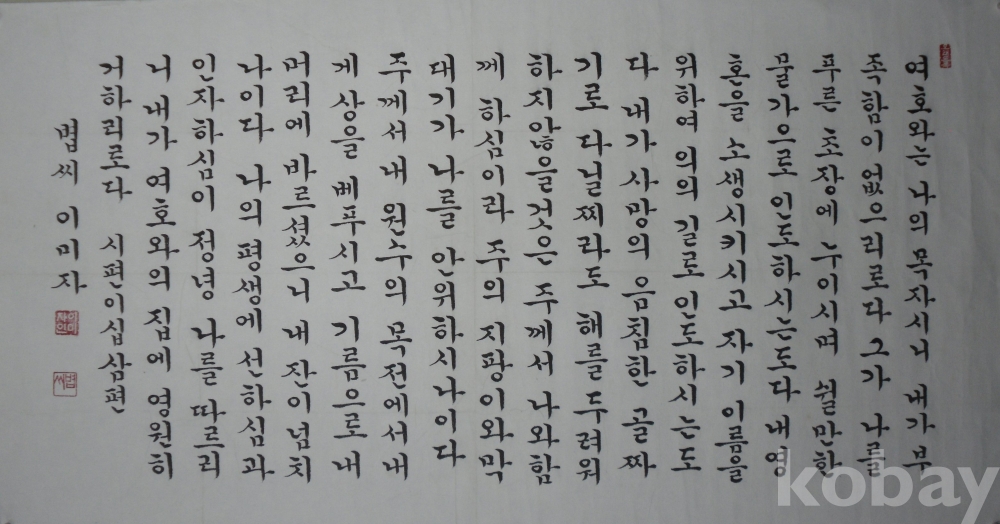 여호와는 나의 목자시니 내가 부
족함이 없으리로다 그가 나를
푸른 초장에 누이시며 쉴만한
물가으로 인도하시는도다 내 영
혼을 소생시키시고 자기 이름을
위하여 의의 길로 인도하시는도
다 내가 사망의 음침한 골짜
기로 다닐찌라도 해를 두려워
하지 않을 것은 주께서 나와 함
께 하심이라 주의 지팡이와 막
대기가 나를 안위하시나이다
주께서 내 원수의 목전에서 내
게 상을 베푸시고 기름으로 내
머리에 바르셨으니 내 잔이 넘치
나이다 나의 평생에 선하심과
인자하심이 정녕 나를 따르리
니 내가 여호와의 집에 영원히
거하리로다 시편이십삼편
볍씨 이미자
이미
자인
볍
씨
kobay